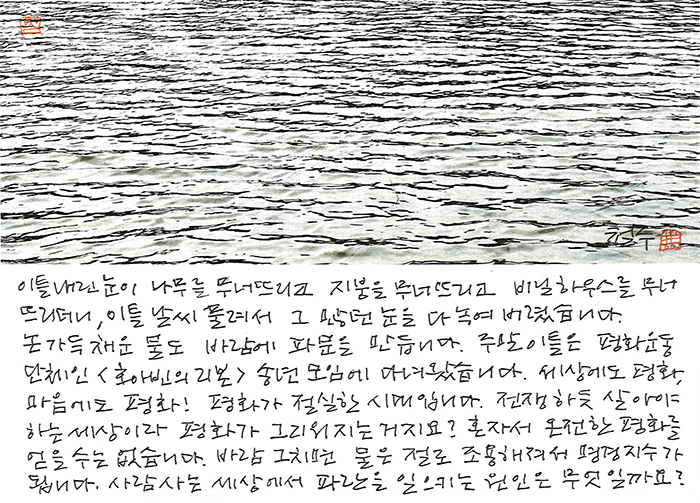 이틀내린 눈이 나무를 무너뜨리고 지붕을 무너뜨리고 비닐하우스를 무너
뜨리더니, 이틀 날씨 풀려서 그 많던 눈을 다 녹여 버렸습니다.
논가득 채운 물도 바람에 파문을 만듭니다. 주말 이틀은 평화운동
단체인 <호아빈의 리본> 송년 모임에 다녀왔습니다. 세상에도 평화,
마음에도 평화! 평화가 절실한 시대입니다. 전쟁하듯 살아야
하는 세상이라 평화가 그리워지는 거지요? 혼자서 온전한 평화를
얻을 수는 없습니다. 바람 그치면 물은 절로 조용해져서 명경지수가
됩니다. 사람사는 세상에서 파란을 일으키는 원인은 무엇일까요?